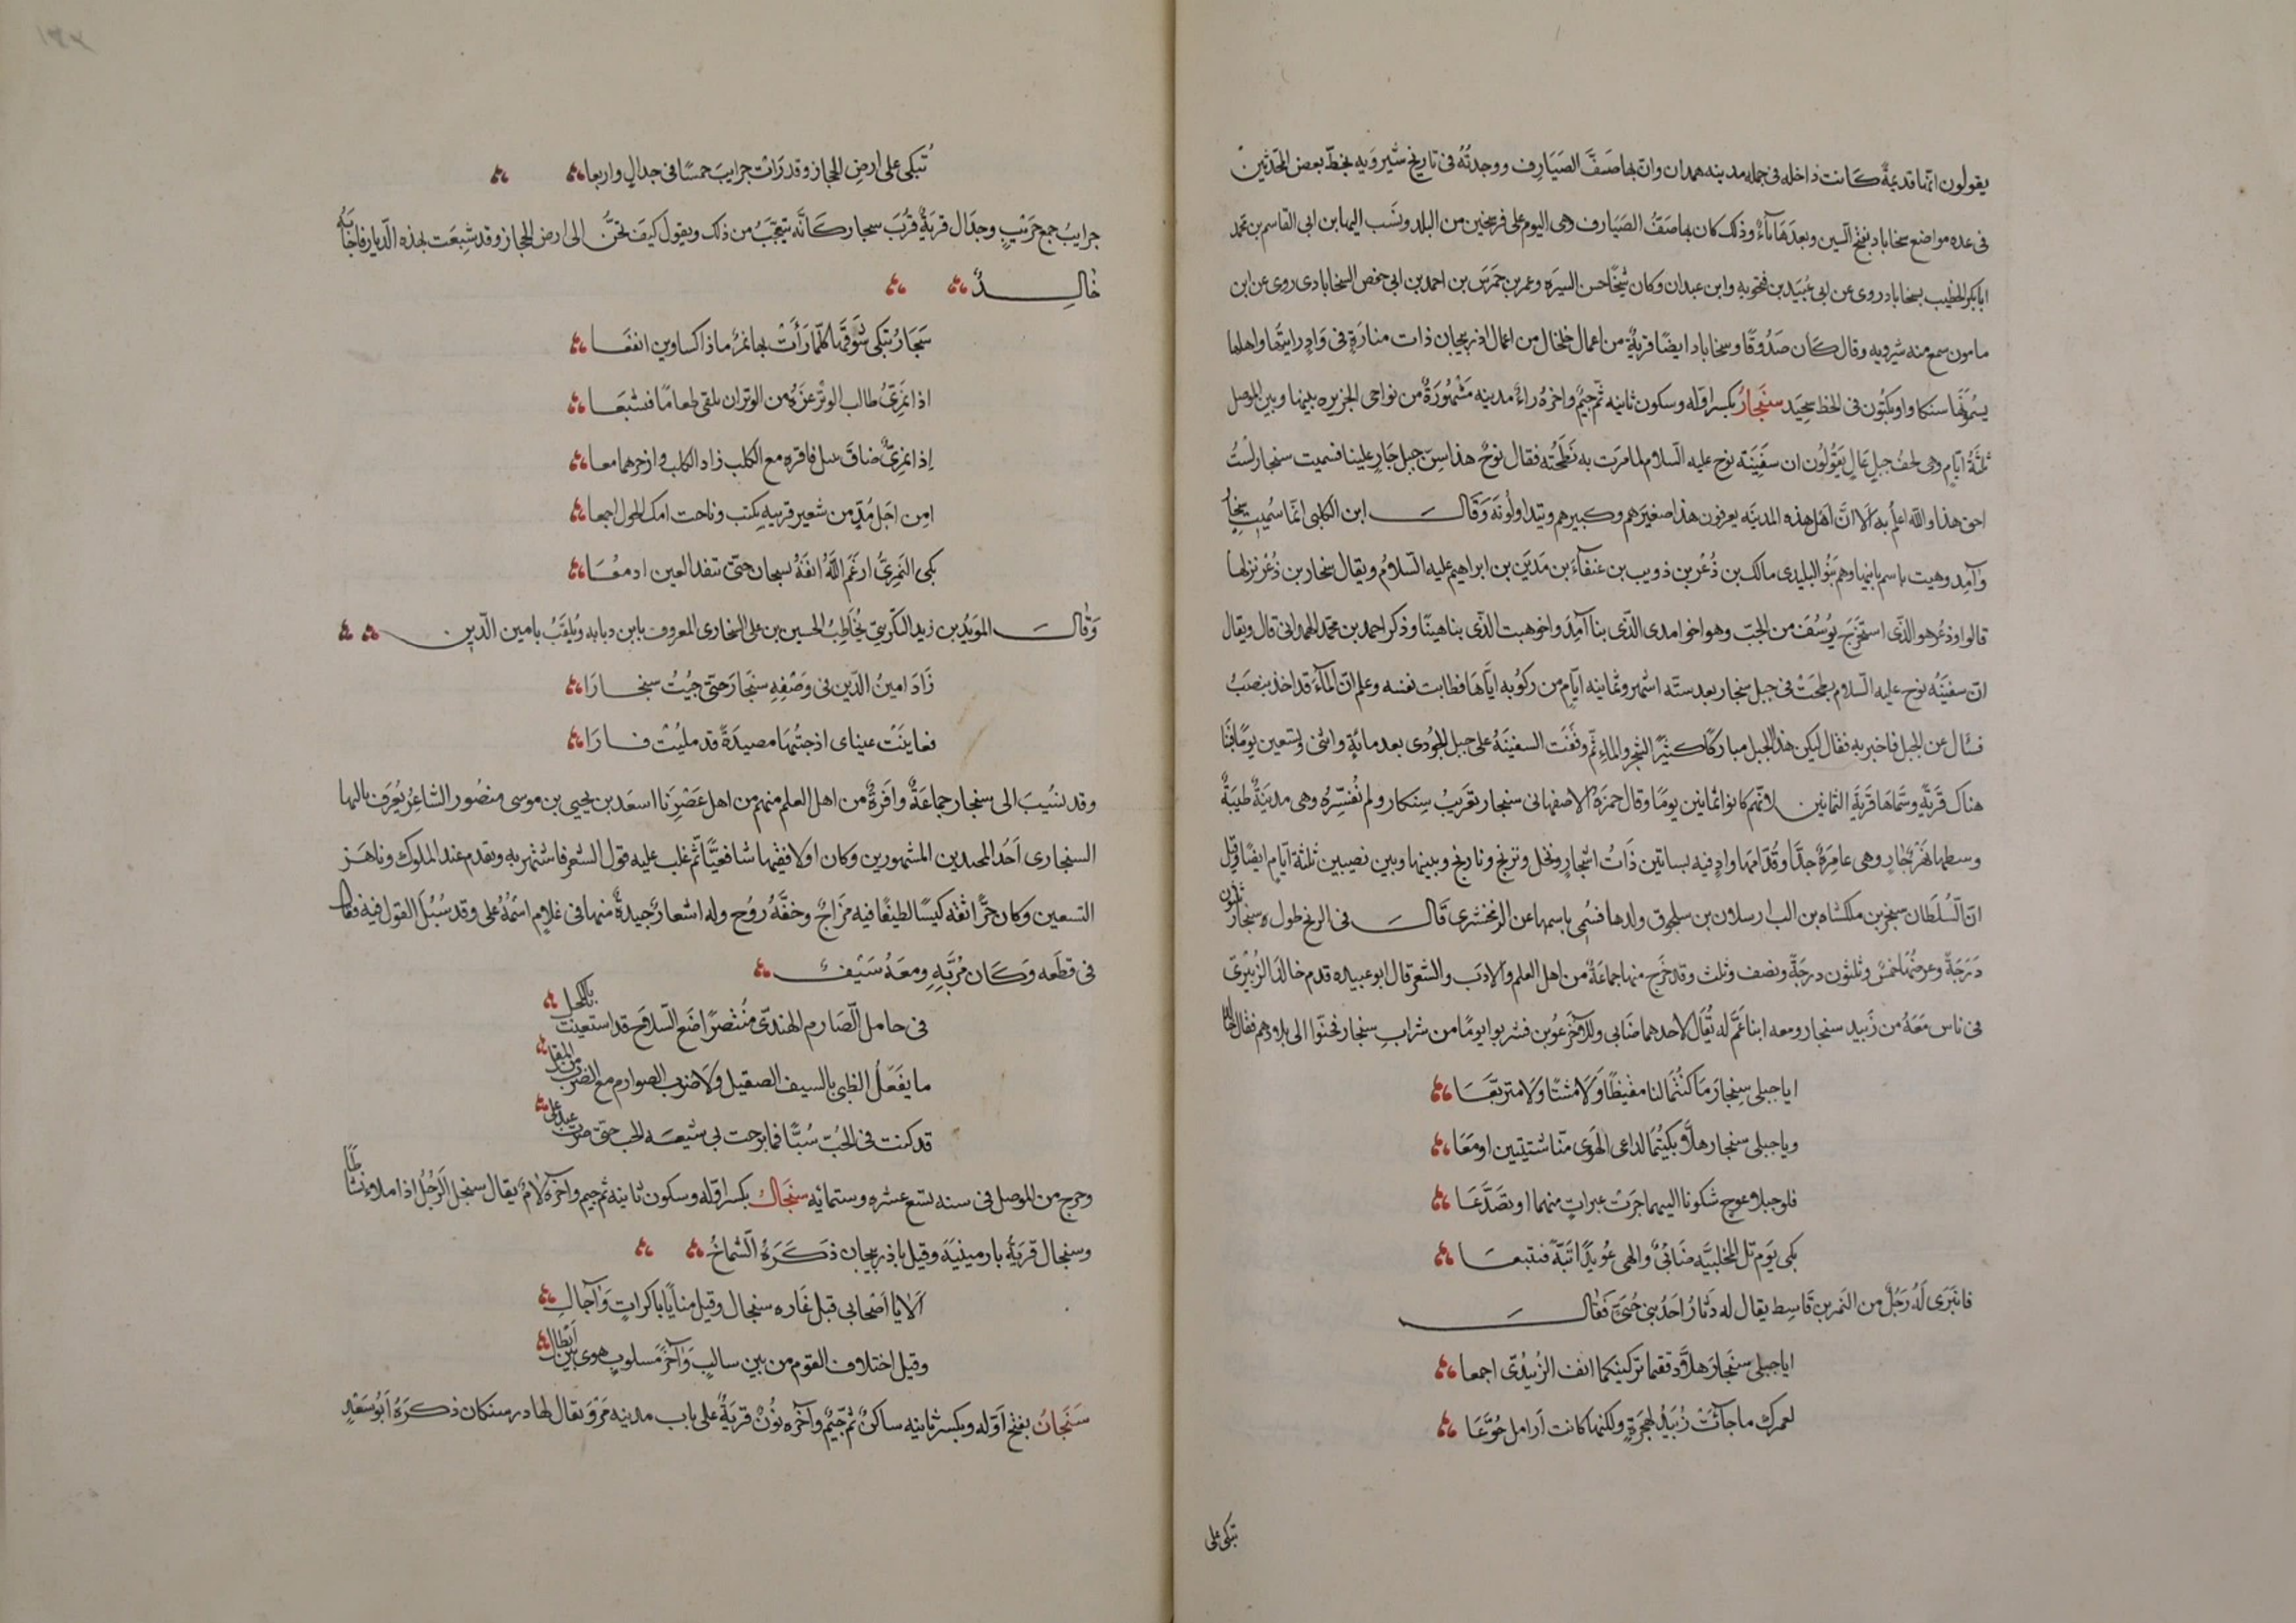 يقولون انها قديمة كانت داخله فى جمله مدينه همدان وان بها صَفَّ الصَيَارِف ووجدتُهُ فى تاريخ شيرويه بخطّ بعض المحدّثين
فى عده مواضع سنجاباد بفتح السّين وبعدَهَا بَآءٌ وذلك كان بها صَفُّ الصَيَارف وهى اليوم على فرسخين من البلد ونَسَب اليها بن ابى القاسم بن محمد
ابابكر الخطيب بسنجاباد روى عن ابى عُبَيد بن فنجويه وابن عبدان وكان شيخًا حسن السيرَه وعمر بن حمَرَسَ بن احمد بن ابى حفص السنجابادى روى عن ابن
مامون سمع منه شيرويه وقال كَان صَدُوقًا وسنجاباد ايضًا قرية من اعمال خلخال من اعمال اذربيجان ذات منارَةٍ فى وَادٍ رايتها واهلها
يسُمونَهَا سنكاوا ويكتبُون فى الخط سجيَد سنجَارُ بكسر اوّله وسكون ثانيه ثمّ جيمٌ واخرهُ راءٌ مدينه مَشْهُورَةٌ من نواحى الجزيره بينها وبين الموصل
ثلثَةُ ايّامٍ وهى لحف جبل عَالٍ يَقُولُون ان سفِينَة نوح عليه السّلام لما مرَت به نَطَحَتْه فقال نوحٌ هذا سِنّ جبل جَارٍ علينا فسميت سنجار لستُ
احق هذا واللّه اعلمُ به اَلا انَّ اَهْل هذه المدينَه يعرفون هذا صغيرَهم وكبيرهم ويتداولُونَه وَقَالَ ابن الكلبى انّما سُميت سِنجارُ
وآمِد وهيت باسم بانيها وهم بَنُو البلَيدى مالك بن ذُعْر بن ذويب بن عنقاءَ بن مَدْيَن بن ابراهيم عليه السّلامُ ويقال سنجار بن ذُعْر نزلها
قالوا وذعُر هو الذّى استخرَجَ يوُسُفَ من الجبّ وهو اخو امدى الذّى بنا آمِدَ واخو هيت الذّى بنا هيتًا وذكر احمد بن محمّد الهمدانى قال ويقال
انّ سفينَهُ نوح عليه السّلام نطحَتْ فى جبل سنجار بعد ستّه اشهر وثمانيه ايّام من ركوبه ايّاهَا فطابت نفسه وعلم انّ الماءَ قد اخذ ينضبُ
فسَال عن الجبل فاخبر به فقال ليكن هذا الجبل مباركًا كثيرً الشجر والماءِ ثمّ وقفَت السفينَهُ على جبل الجوُدى بعد مائةٍ واثنى وتسعين يومًا فبَنَا
هناك قَريَةً وسَمّاهَا قَريَة الثمانين لانّهم كانوا ثمانين يومًا وقال حمزَه الاصفهانى سنجار تعريبُ سِنكار ولم نُفسّرهُ وهى مدينَةٌ طيبَةٌ
وسطها نهرٌ جارٍ وهى عامِرَةٌ جدًّا وقدّامها وادٍ فيه بساتين ذَاتُ اشجارٍ ونخل وترنج ونارنج وبينها وبين نصيبين ثلثةُ ايّامٍ ايضًا وقيل
انّ السُلطَان سنجر بن ملكشاه بن الب ارسلان بن سلجوق ولد بها فسُمى باسمها عن الزمخشرى قَالَ فى الزيج طول سنجار ثلثون
دَرَجَةً وعرضُهَا خمسٌ وثلثون درجَةً ونصف وثلث وقد خرَج منها جماعَةٌ من اهل العلم والادَب والشعر قال ابو عبيده قدم خالدَ الزُبَيْرىّ
فى ناس مَعَهُ من زَبيد سنجار ومعه ابنا عَمَّ له يُقَالُ لاحدهما ضَابى وللآخر عُوبن فشربوا يومًا من شرابِ سِنجار فحنّوا الى بلادهم فقال خالد
ايا جبلى سِنجارَ مَا كنُتُمَا لنا مقيظًا وَلا مشتًا ولا متربَّعَا
ويا جبلى سنجار هلاّ بكيتُمَا لداعى الهَوى منّا شتيتين اومَعَا
فلو جبلا عوجٍ شكونا اليهما جرَتْ عبراتٍ منهما او تصَدَّعَا
بكى يَوم تلّ المخلبيّه ضابىٌ والهى عُوَيدًا بَثّهُ فتتبعَا
فانبَرَى لَهُ رَجُلٌ من النَمر بن قَاسِط يقال له دَثارُ احَدُ بنى حُيَىّ فَقَالَ
ايا جبلى سنجَارَ هلاّ دققتما بركنيكما انف الزُبيْدىّ اجمعا
لعمرك ما جآءَتْ زُبيدُ لهجرَةٍ ولكنها كانت اَرامل جُوّعَا
تبكى على
تُبكى على ارضِ الحجاز وقد رَات جرايبَ خمسًا فى جدالٍ واربعا
جرايبُ جمع جَريْبٍ وجدَال قريَةٌ قُربَ سنجار كَانّه يتعَجّبُ من ذلك ويقول كيفَ تحنّ الى ارض الحجاز وقد شبِعَت بهذه الدّيار فاجَابَهُ
خَالِدٌ
سَنجَارُ تبكى شَوقَهَا كلّمَا رَأَتْ بها نمرٌ ماذا كساوينِ انفعَا
اذا نَمَرِىٌّ طالب الوتْر عزَّهُ من الوتران يلقى طعامًا فشبعَا
إذا نمرِىٌّ ضاقَ فاقره مع الكلب زاد الكلب وازجرهما معا
امِن اجَل مُدٍّ من شعيرٍ قريتهِ بكيت وناحت امك الحول اجمعا
بكى النمرِىُّ ارغَمَ اللّهُ انفَهُ بسنجار حتى تنفد العين ادمعَا
وَقَالَ المؤيّدُ بن زيد التكَريتىّ يُخَاطِبُ الحسين بن على السنجارى المعروف بابن دبابه ويُلقّبُ بامين الدّين
زَادَ امينُ الدّين فى وَصْفِهِ سنجَارَ حتى جيُتُ سنجَارَا
فعاينَتْ عيناى اذ جئتُهَا مصيدَةً قد مليُتْ فَارَا
وقد نسُيبَ الى سنجار جماعَةٌ وافَرةٌ من اهل العلم منهم من اهل عَصْرِنَا اسعَد بن يحيى بن موسى منصُور الشاعِرُ يُعرَف بالبها
السنجارى اَحَدُ المجيدين المشهورين وكان اولا فقيها شافعيًّا ثمّ غلب عليه قول الشعر فاشتهر به وتقدم عند الملوك وناهَز
التسعين وكان حَرًّا ثقه كيسًا لطيفًا فيه مزَاجٌ وخفّةُ روُح وله اشعارٌ جيدةٌ منها فى غلامٍ اسمُهُ على وقد سُبُلَ القول فيه فقال
فى قطعَه وَكَان مُرَّبَهِ ومعَهُ سَيْفٌ
فى حامل الصّارم الهندىّ مُنْتصرًا ضَع السّلاحَ قد استغنيتَ بالكحل
ما يفعَلُ الظبى بالسيف الصقيل ولاَ ضرب الصوارم مع الضربِ من المقل
قد كنت فى الحبُّ سُنّيًّا فما برحت بى شيعَه الحب حتى صرت عبد على
وخرج من الموصل فى سنه تسع عشره وستمايه سنجَال بكسر اوّله وسكون ثانيه ثم جيم واخره لامٌ يقال سنجل الرَجُلُ اذا ملاء نشاطًا
وسنجال قريَةُ بارمينيَهَ وقيل باذربيجان ذكَرَهُ الشماخُ
اَلايا اَصْحابى قبل غَاره سنجال وقبل منايًا باكراتٍ وَآجالِ
وقيل اختلاف القوم من بين سالبٍ وَآخرَ مسلوبٍ هوى بين اَبْطال
سَنجَانُ بفتح اَوّله ويكسر ثانيه ساكنٌ ثم جّيمٌ وآخره نُونٌ قريَةٌ على باب مدينه مَروَ يقال لها درسنكان ذكَرَهُ اَبُو سَعْدٍ